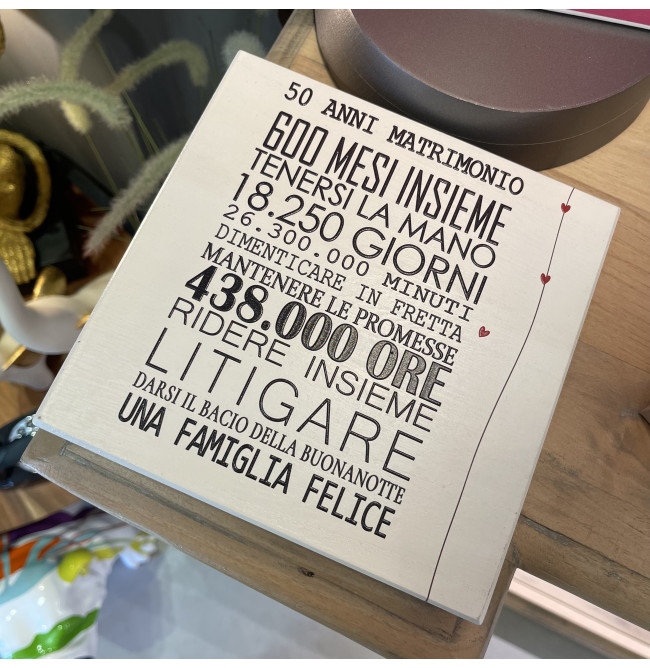 50 ANNI MATRIMONIO
600 MESI INSIEME
TENERSI LA MANO
18.250 GIORNI
26.300.000 MINUTI
DIMENTICARE IN FRETTA
MANTENERE LE PROMESSE
438.000 ORE
RIDERE INSIEME
LITIGARE
DARSI IL BACIO DELLA BUONANOTTE
UNA FAMIGLIA FELICE